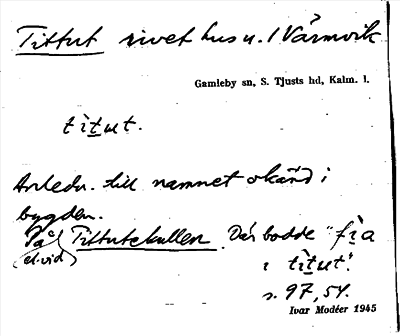 Tittut rivet hus u. / Värmvik
Gamleby sn, S. Tjusts hd, Kalm. l.
titut.
Anledn. till namnet okänd i
bygden.
På Tittutekullen. Där bodde "fia
(el. vid)
i titut".
s. 97, 54.
Ivar Modéer 1945